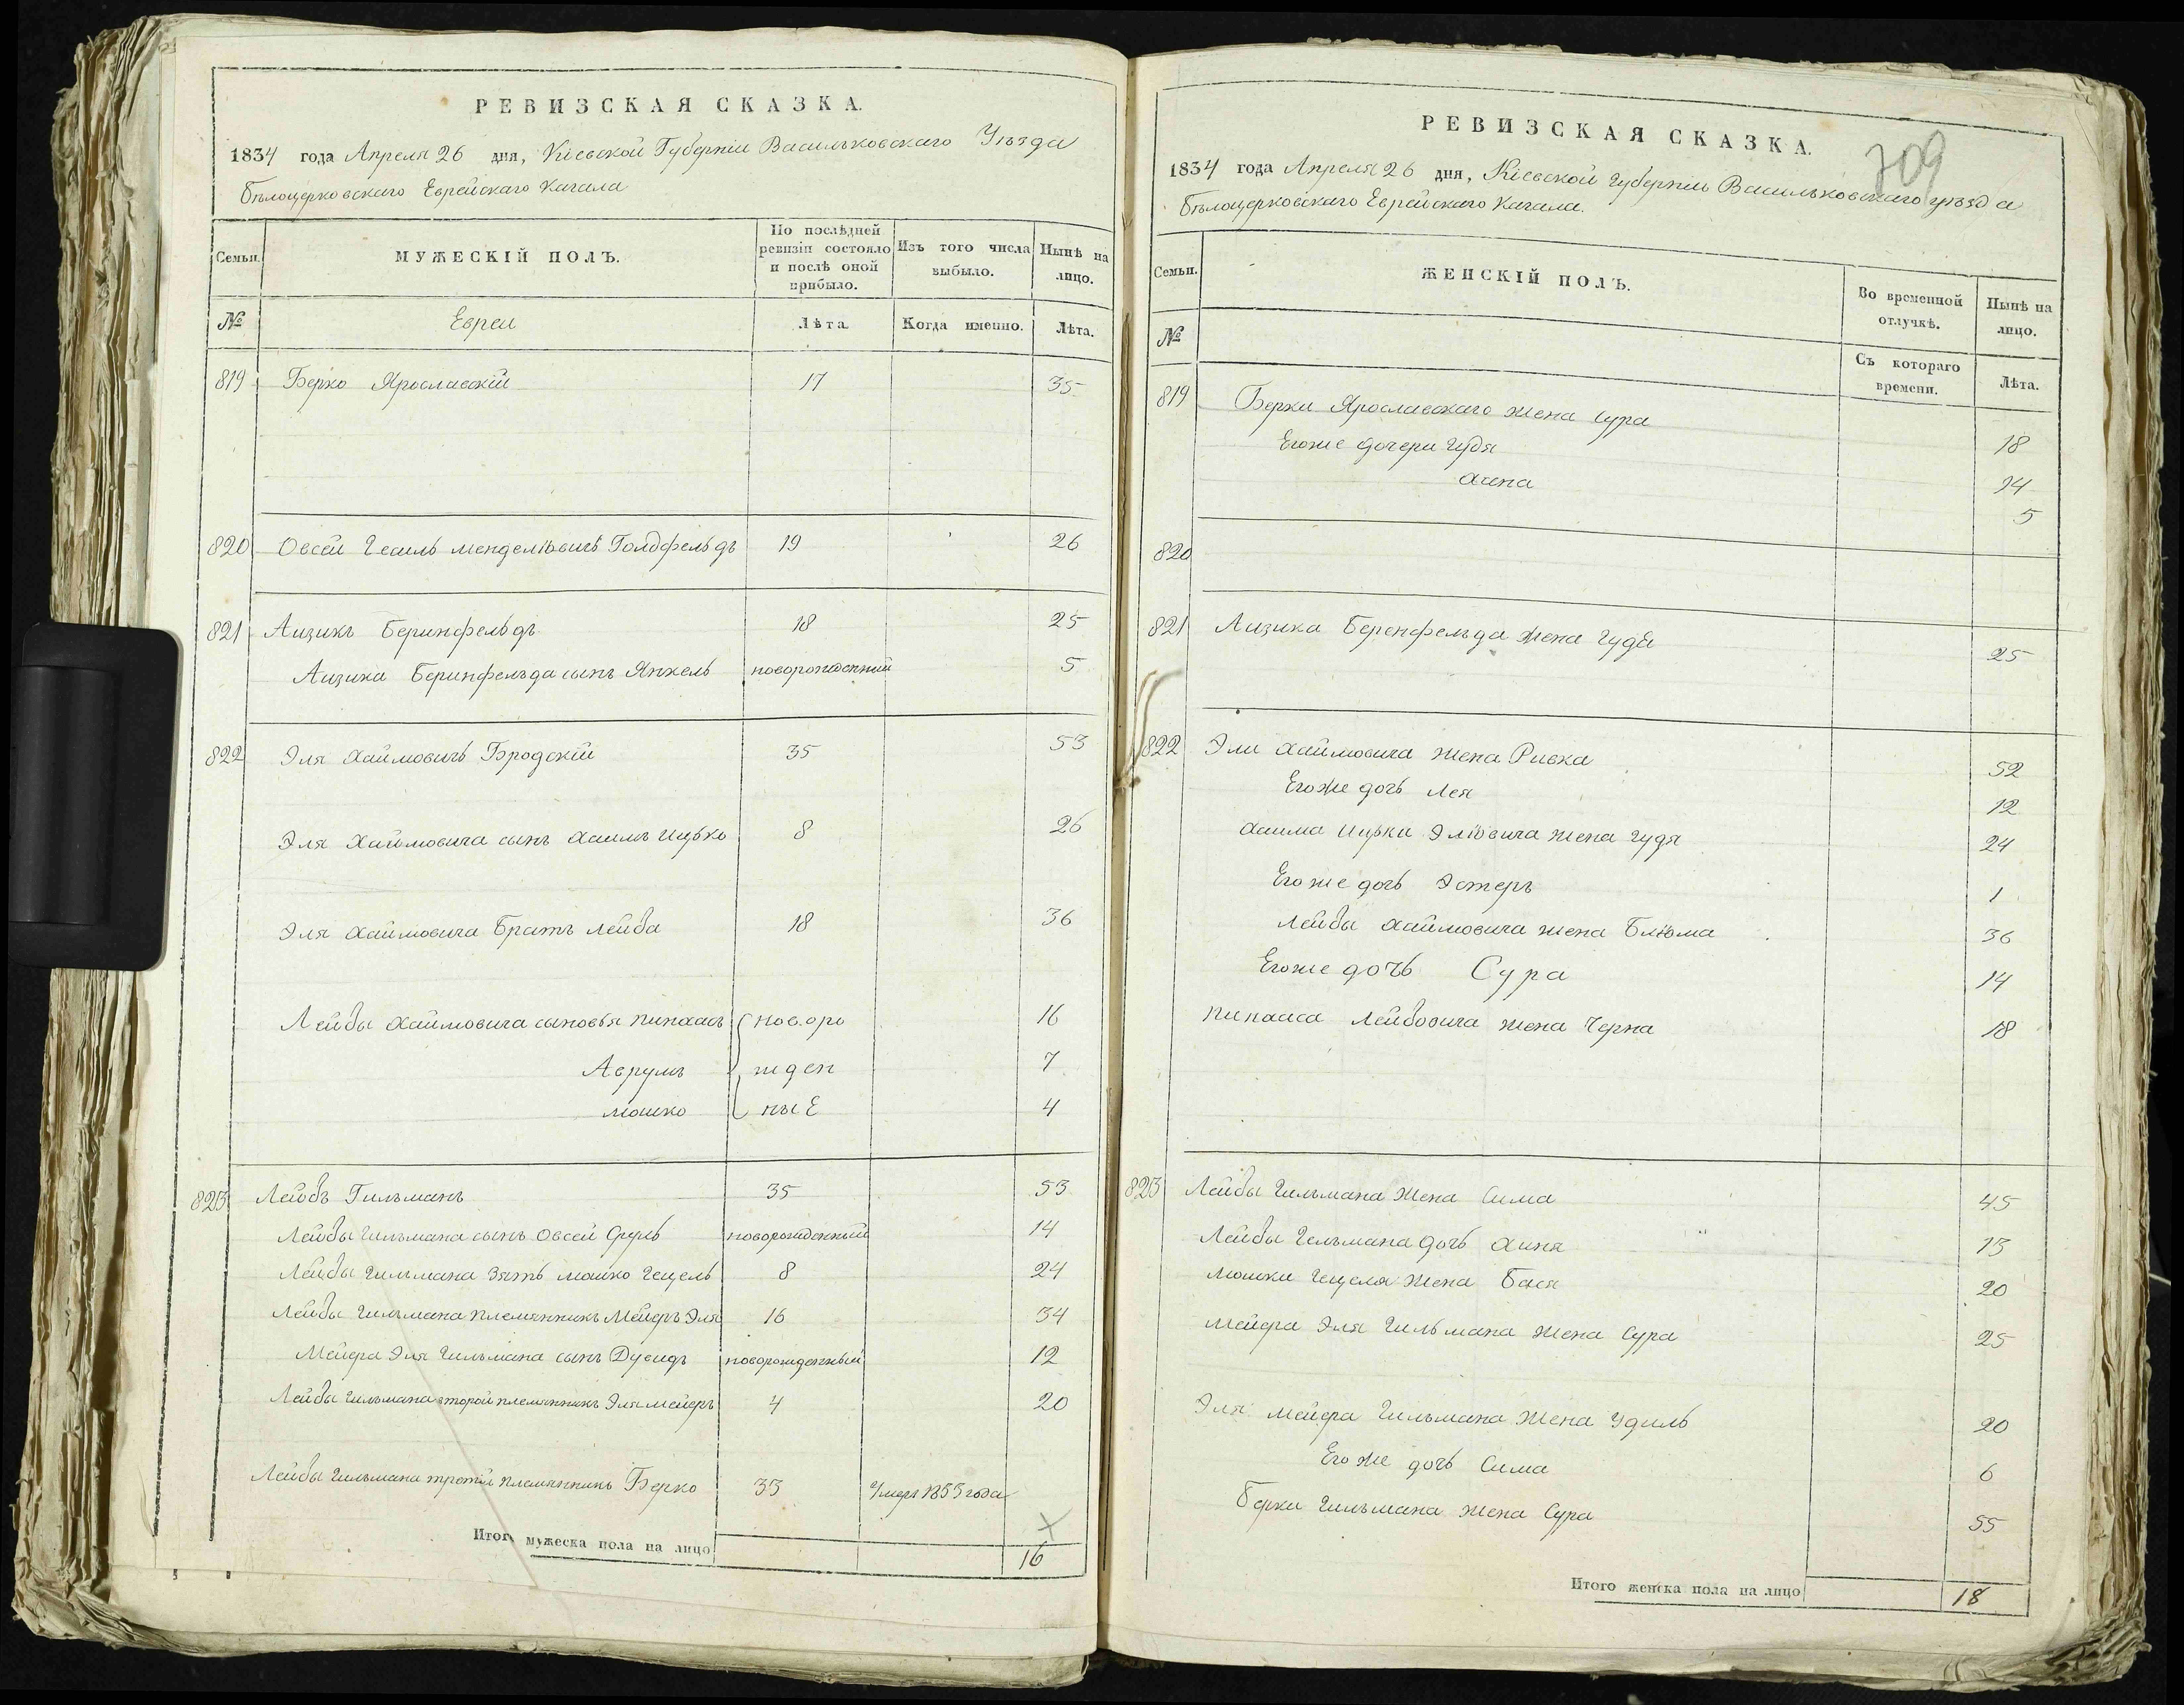 РЕВИЗСКАЯ СКАЗКА.
1834 года Апреля 26 дня, Кіевской Губерніи Васильковскаго Уѣзда
Бѣлоцерковскаго Еврейскаго Кагала
Семьи. МУЖЕСКІЙ ПОЛЪ. По послѣдней ревизіи состояло и послѣ оной прибыло. Изъ того числа выбыло. Нынѣ на лицо.
№ Евреи Лѣта Когда именно. Лѣта.
819 Берко Ярославскій 17 35
820 Овсей Гесиль Менделіовичъ Голдфельдъ 19 26
821 Аизикъ Беринфельдъ 18 25
Аизика Беринфельда сынъ Янкель новорожденный 5
822 Эля Хаимовичъ Бродскій 35 53
Эля Хаимовича сынъ Хаимъ Ицько 8 26
Эля Хаимовича Братъ Лейба 18 36
Лейбы Хаимовича сыновья Пинхасъ новоро 16
Аврумъ жден 7
Мошко ные 4
823 Лейбъ Гильманъ 35 53
Лейбы Гильмана сынъ Овсей Сруль новорожденный 14
Лейбы Гильмана Зять Мошко Гецель 8 24
Лейбы Гильмана племянникъ Мейеръ Эля 16 34
Мейера Эля Гильмана сынъ Дувидъ новорожденный 12
Лейбы Гильмана второй племянникъ Эля Мейеръ 4 20
Лейбы Гильмана третій племянникъ Берко 35 Умеръ 1833 года
Итого мужеска пола на лицо 16
709
РЕВИЗСКАЯ СКАЗКА.
1834 года Апреля 26 дня, Кіевской Губерніи Васильковскаго уѣзда
Бѣлоцерковскаго Еврейскаго Кагала.
Семьи. ЖЕНСКІЙ ПОЛЪ. Во временной отлучкѣ. Нынѣ на лицо.
№ Съ котораго времени. Лѣта.
819 Берки Ярославскаго жена Сура 18
Егоже дочери Гудя 14
Хина 5
820
821 Аизика Беренфельда жена Гудя 25
822 Эли Хаимовича жена Ривка 52
Егоже дочь Лея 12
Хаима Ицька Эліовича жена Гудя 24
Егоже дочь Эстеръ 1
Лейбы Хаймовича жена Блюма 36
Егоже дочь Сура 14
Пинхаса Лейбовича жена Черна 18
823 Лейбы Гильмана жена Сима 45
Лейбы Гильмана дочь Хиня 13
Мошки Гецеля жена Бася 20
Мейера Эля Гильмана жена Сура 25
Эля Мейера Гильмана жена Удиль 20
Егоже дочь Сима 6
Берки Гильмана жена Сура 55
Итого женска пола на лицо 18